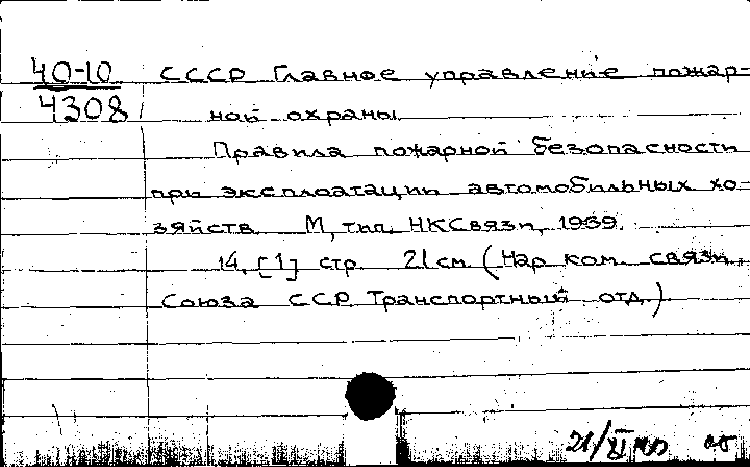 40-10
4308
СССР Главное управление пожар-
ной охраны.
Правила пожарной безопасности
при эксплоатации автомобильных хо-
зяйств. М, тип. НКСвязи, 1939.
14, [1] стр. 21 см. (Нар. ком. связи
Союза ССР. Транспортный отд.).
21/XI